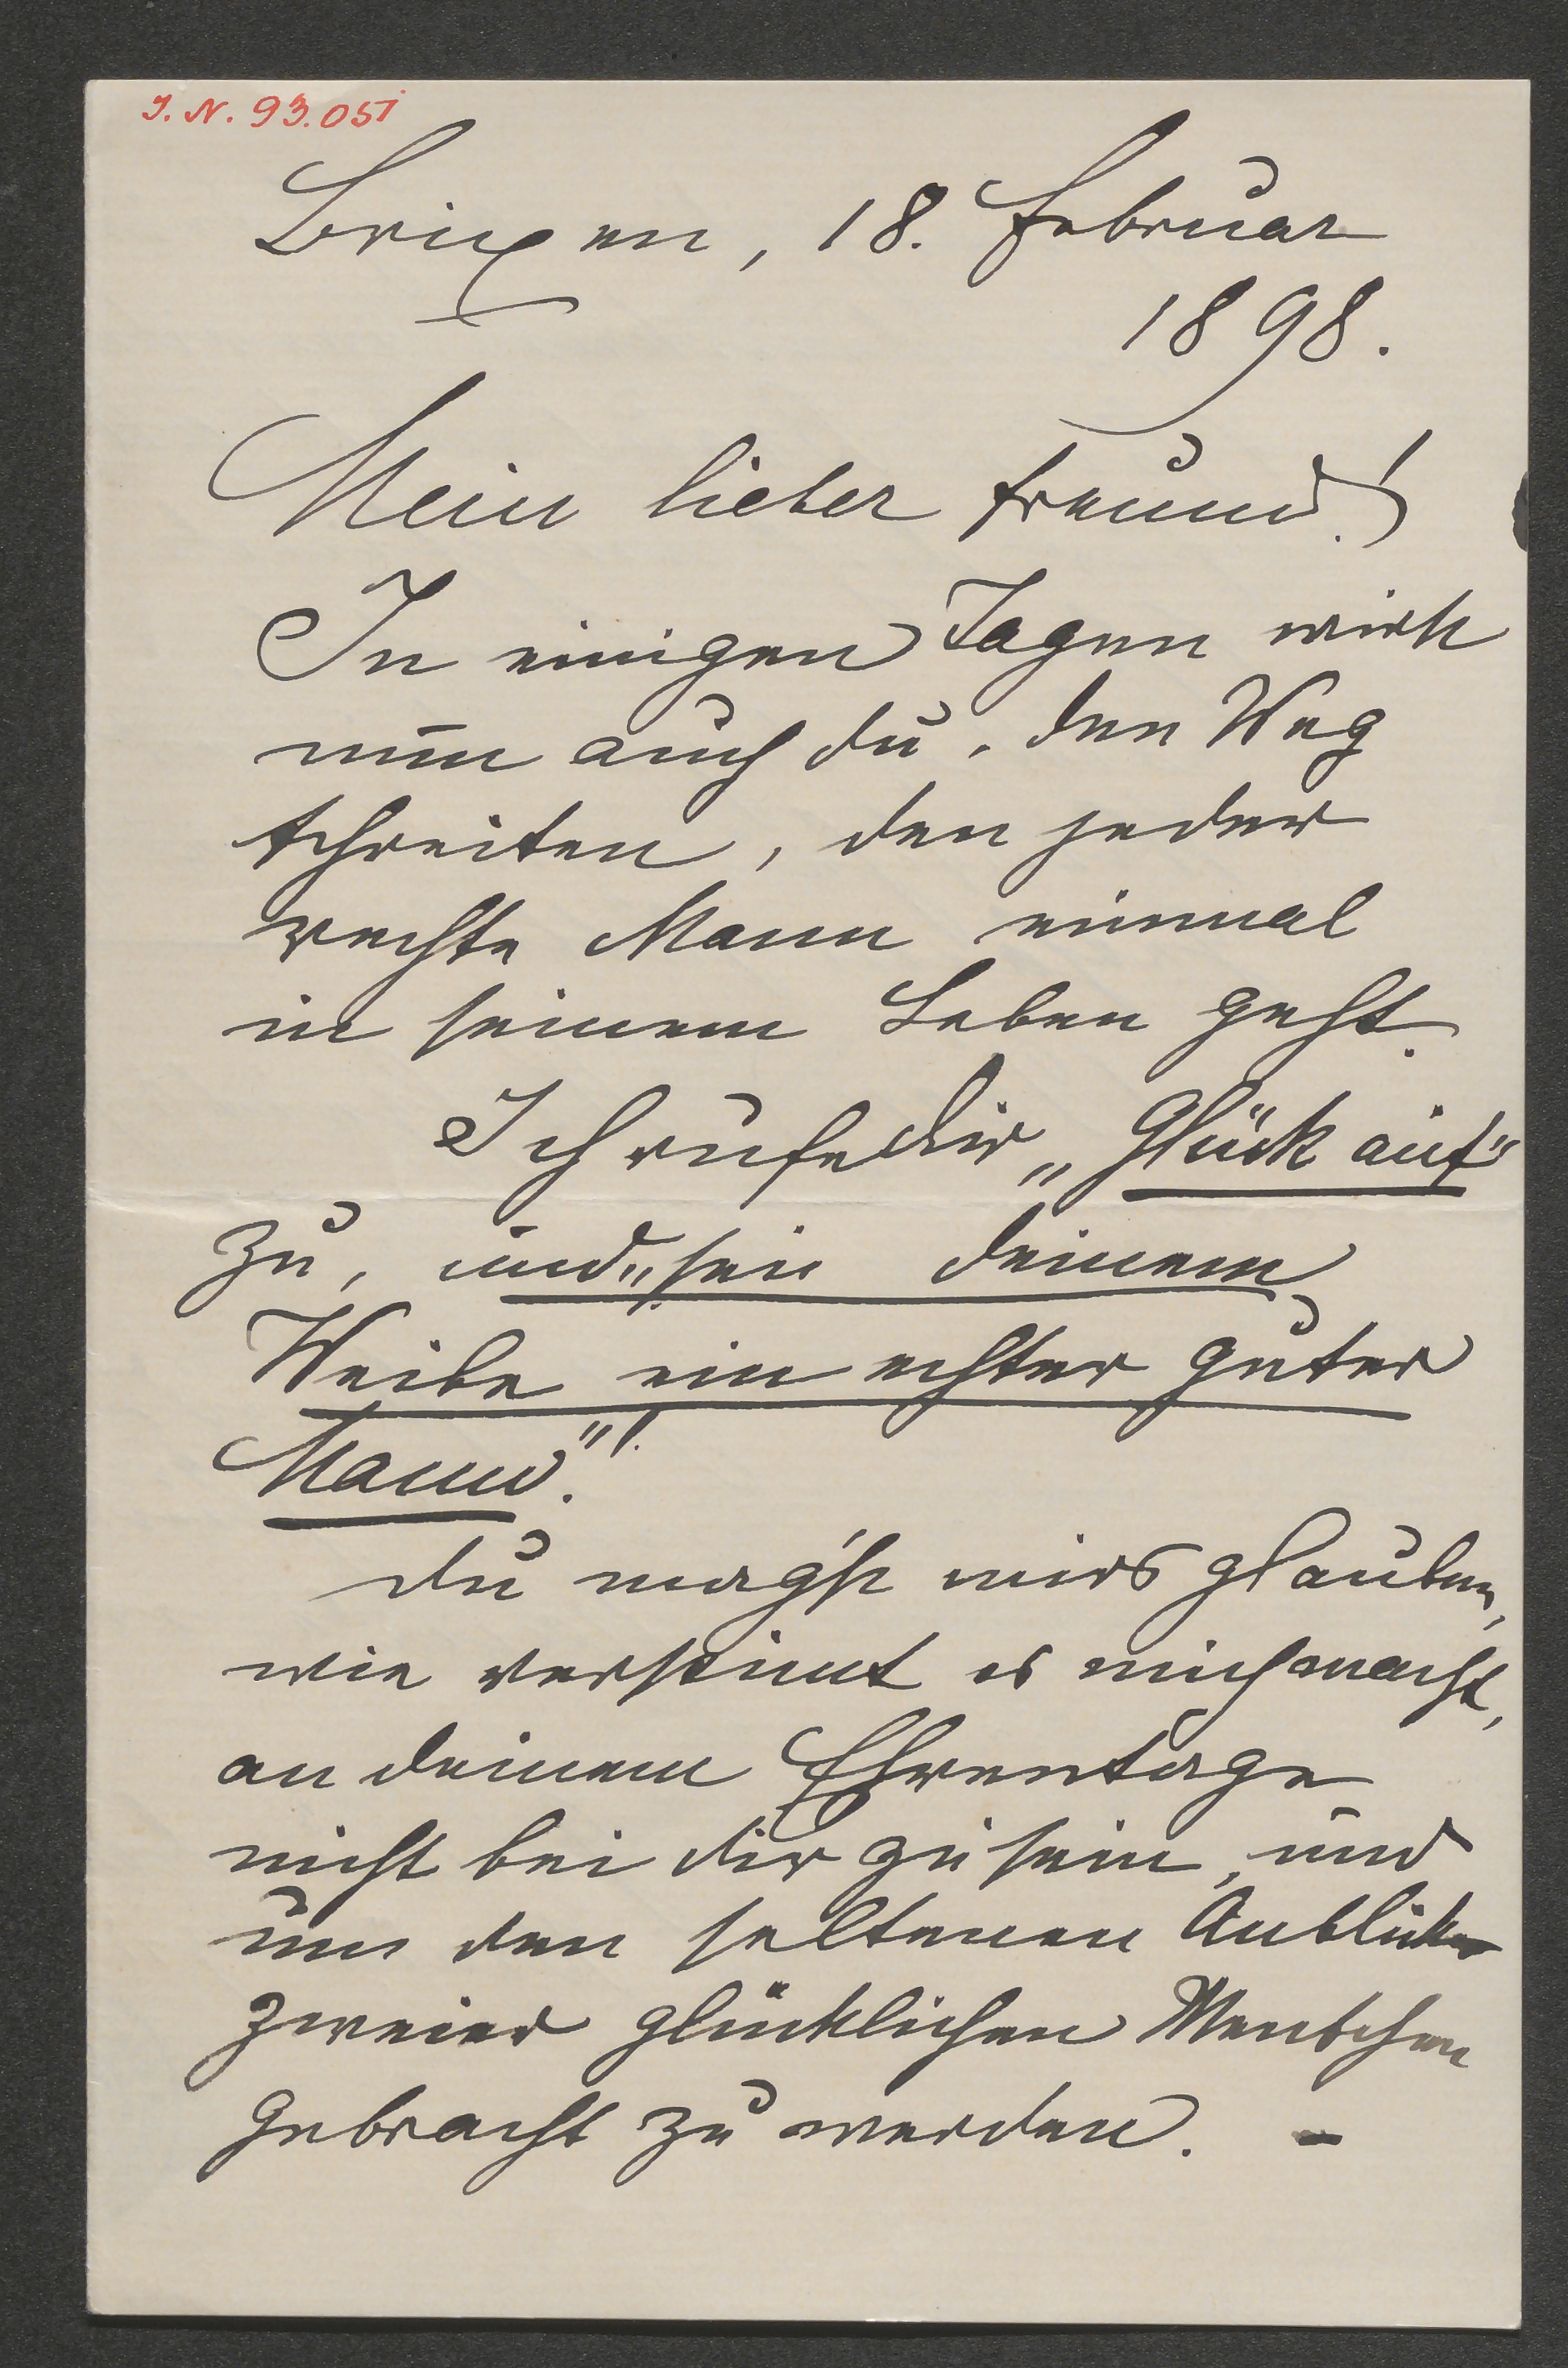 I. N. 93.051
Brixen, 18. Februar
1898.
Mein lieber Freund!
In einigen Tagen wirst
nun auch du, den Weg
schreiten, den jeder
rechte Mann einmal
in seinem Leben geht.
Ich rufe dir „Glück auf“
zu, und „sei deinem
Weibe ein echter guter
Mann.“!
du mag'st mirs glauben,
wie verstimt es mich macht,
an deinem Ehrentage
nicht bei dir zu sein, und
um den seltenen Anblick
zweier glücklichen Menschen
gebracht zu werden. –